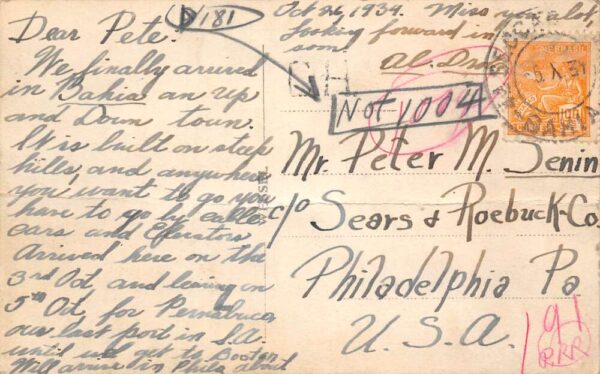 D/181
Dear Pete.
We finally arrived
in Bahia an up
and Down town.
It is built on steep
hills, and anywhere
you want to go you
have to go by cable
cars and Elevators
Arrived here on the
3rd Oct and leaving on
5th Oct. for Pernabuco
our last port in S.A.
until we get to Boston
Will arrive in Phila about
Oct 26, 1934. Miss you alot,
Looking forward in
soon.
Al.
G.H.
Not 1004
BRASIL
BAHIA
Mr. Peter M. Jenin
c/o Sears & Roebuck-Co.
Philadelphia Pa
U.S.A.
191
RRR